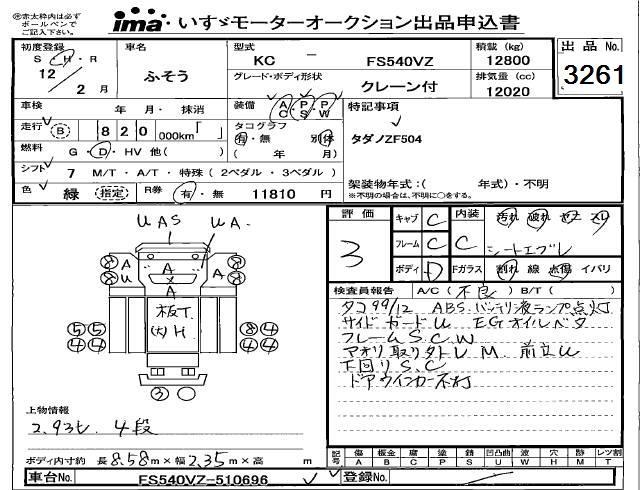 ※赤太枠内は必ず
ボールペンで
ご記入下さい。
ima いすゞモーターオークション出品申込書
初度登録 S・H・R 12年 2月
車名 ふそう
型式 KC － FS540VZ
グレード・ボディ形状 クレーン付
積載 (kg) 12800
排気量 (cc) 12020
出品 No. 3261
車検 年 月・ 抹消
装備 AC・PS・PW
特記事項
走行 (B) 820 000km「 」
タコグラフ 有・無 別体
( 年 月)
タダノZF504
燃料 G・D・HV 他( )
シフト 7 M/T・A/T・特殊 (2ペダル・3ペダル)
架装物年式:( 年式)・不明
※不明の場合は、不明に○をする。
色 緑 (指定) R券 有・無 11810 円
UAS UA.
A A A A
板T.
(大)H
⑤⑤ ⑧④
④④ ④④
③
上物情報
2.93t. 4段
ボディ内寸約 長8.58m×幅2.35m×高 m
評価 3
キャブ C
フレーム C
ボディ D
内装 C
汚れ 破れ ヤケ スリ
シートエプレ
Fガラス 割れ 線 点傷 イバリ
検査員報告 A/C(不良) B/T( )
タコ99/12 ABS.バッテリ液ランプ点灯
サイドガードU EGオイルベタ
フレームS.C.W
アオリ取り外しU M. 前立U
下回りS.C
ドアウインカー不灯
記号 傷 板金 腐 塗 錆 凹凸曲 波 穴 跡 レツ割
A B C P S U W H M T
車台No. FS540VZ-510696
登録No.